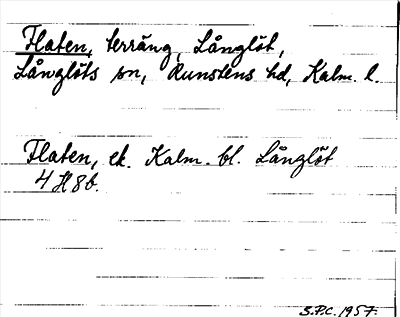 Flaten, terräng, Långlöt,
Långlöts sn, Runstens hd, Kalm. l.
Flaten, ek. Kalm. bl. Långlöt
4 H 8 b.
S.P.C. 1957.